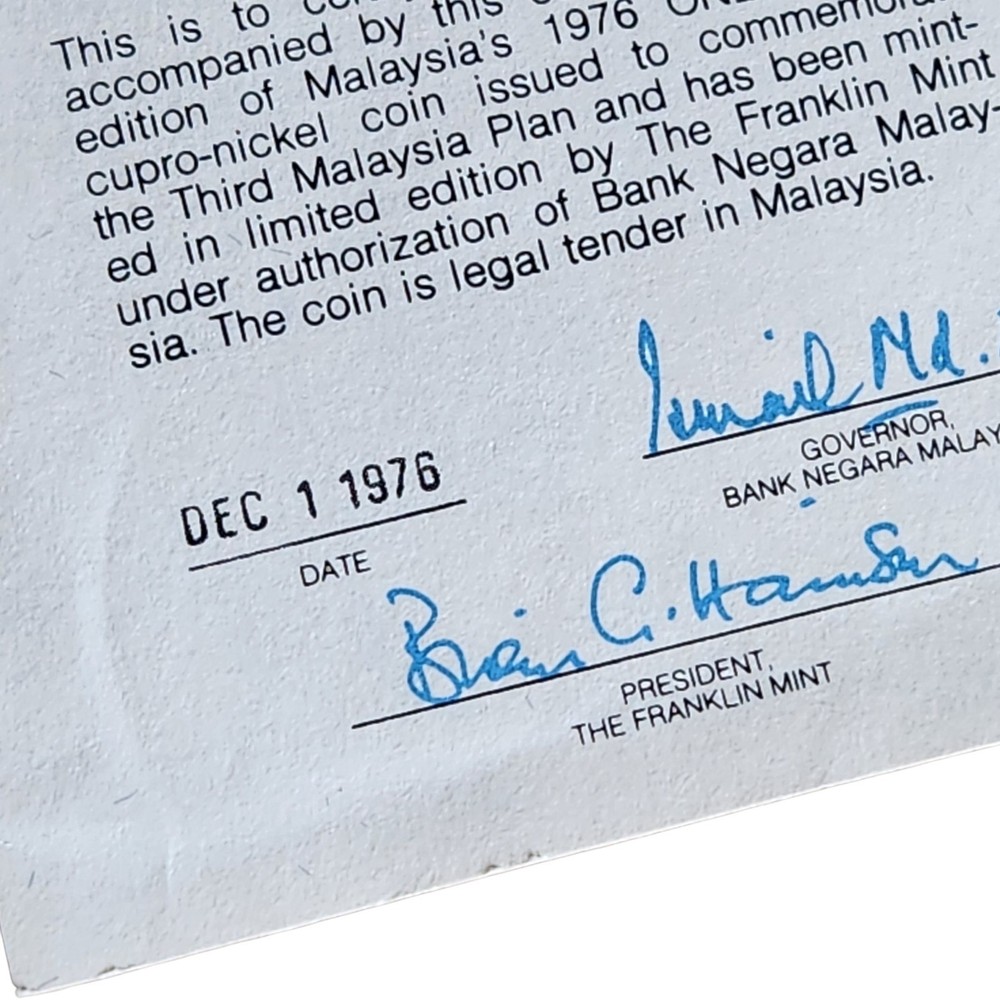 This is to
accompanied by this
edition of Malaysia's 1976
cupro-nickel coin issued to commemora
the Third Malaysia Plan and has been mint-
ed in limited edition by The Franklin Mint
under authorization of Bank Negara Malay-
sia. The coin is legal tender in Malaysia.
Ismail Md.
GOVERNOR,
BANK NEGARA MALAY
DEC 1 1976
DATE
Brian G. Harrison
PRESIDENT,
THE FRANKLIN MINT